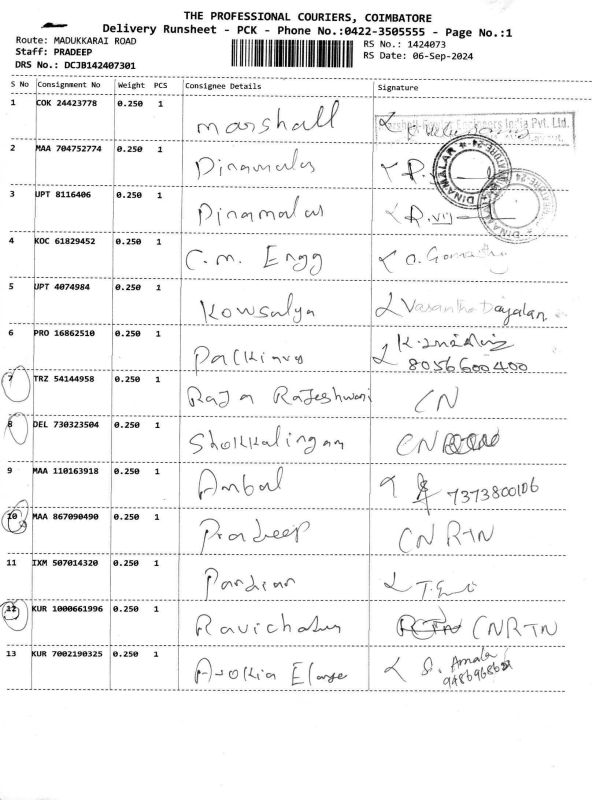 THE PROFESSIONAL COURIERS, COIMBATORE
Delivery Runsheet - PCK - Phone No.:0422-3505555 - Page No.:1
Route: MADUKKARAI ROAD
RS No.: 1424073
Staff: PRADEEP
RS Date: 06-Sep-2024
DRS No.: DCJB142407301
S No Consignment No Weight PCS Consignee Details Signature
1 COK 24423778 0.250 1 Marshall
2 MAA 704752774 0.250 1 Dinamalar
DINAMALAR
3 UPT 8116406 0.250 1 Dinamalar
4 KOC 61829452 0.250 1 C.M. Engg
5 UPT 4074984 0.250 1 Kowsalya Vasantha Dayalan
6 PRO 16862510 0.250 1
8056600400
7 TRZ 54144958 0.250 1 Raja Rajeshwari CN
8 DEL 730323504 0.250 1 Shokkalingam CN
9 MAA 110163918 0.250 1 Ambal 7373800106
10 MAA 867090490 0.250 1 Pradeep CN RTN
11 IXM 507014320 0.250 1 Pandian
12 KUR 1000661996 0.250 1 CNRTN
13 KUR 7002190325 0.250 1 S. Amala